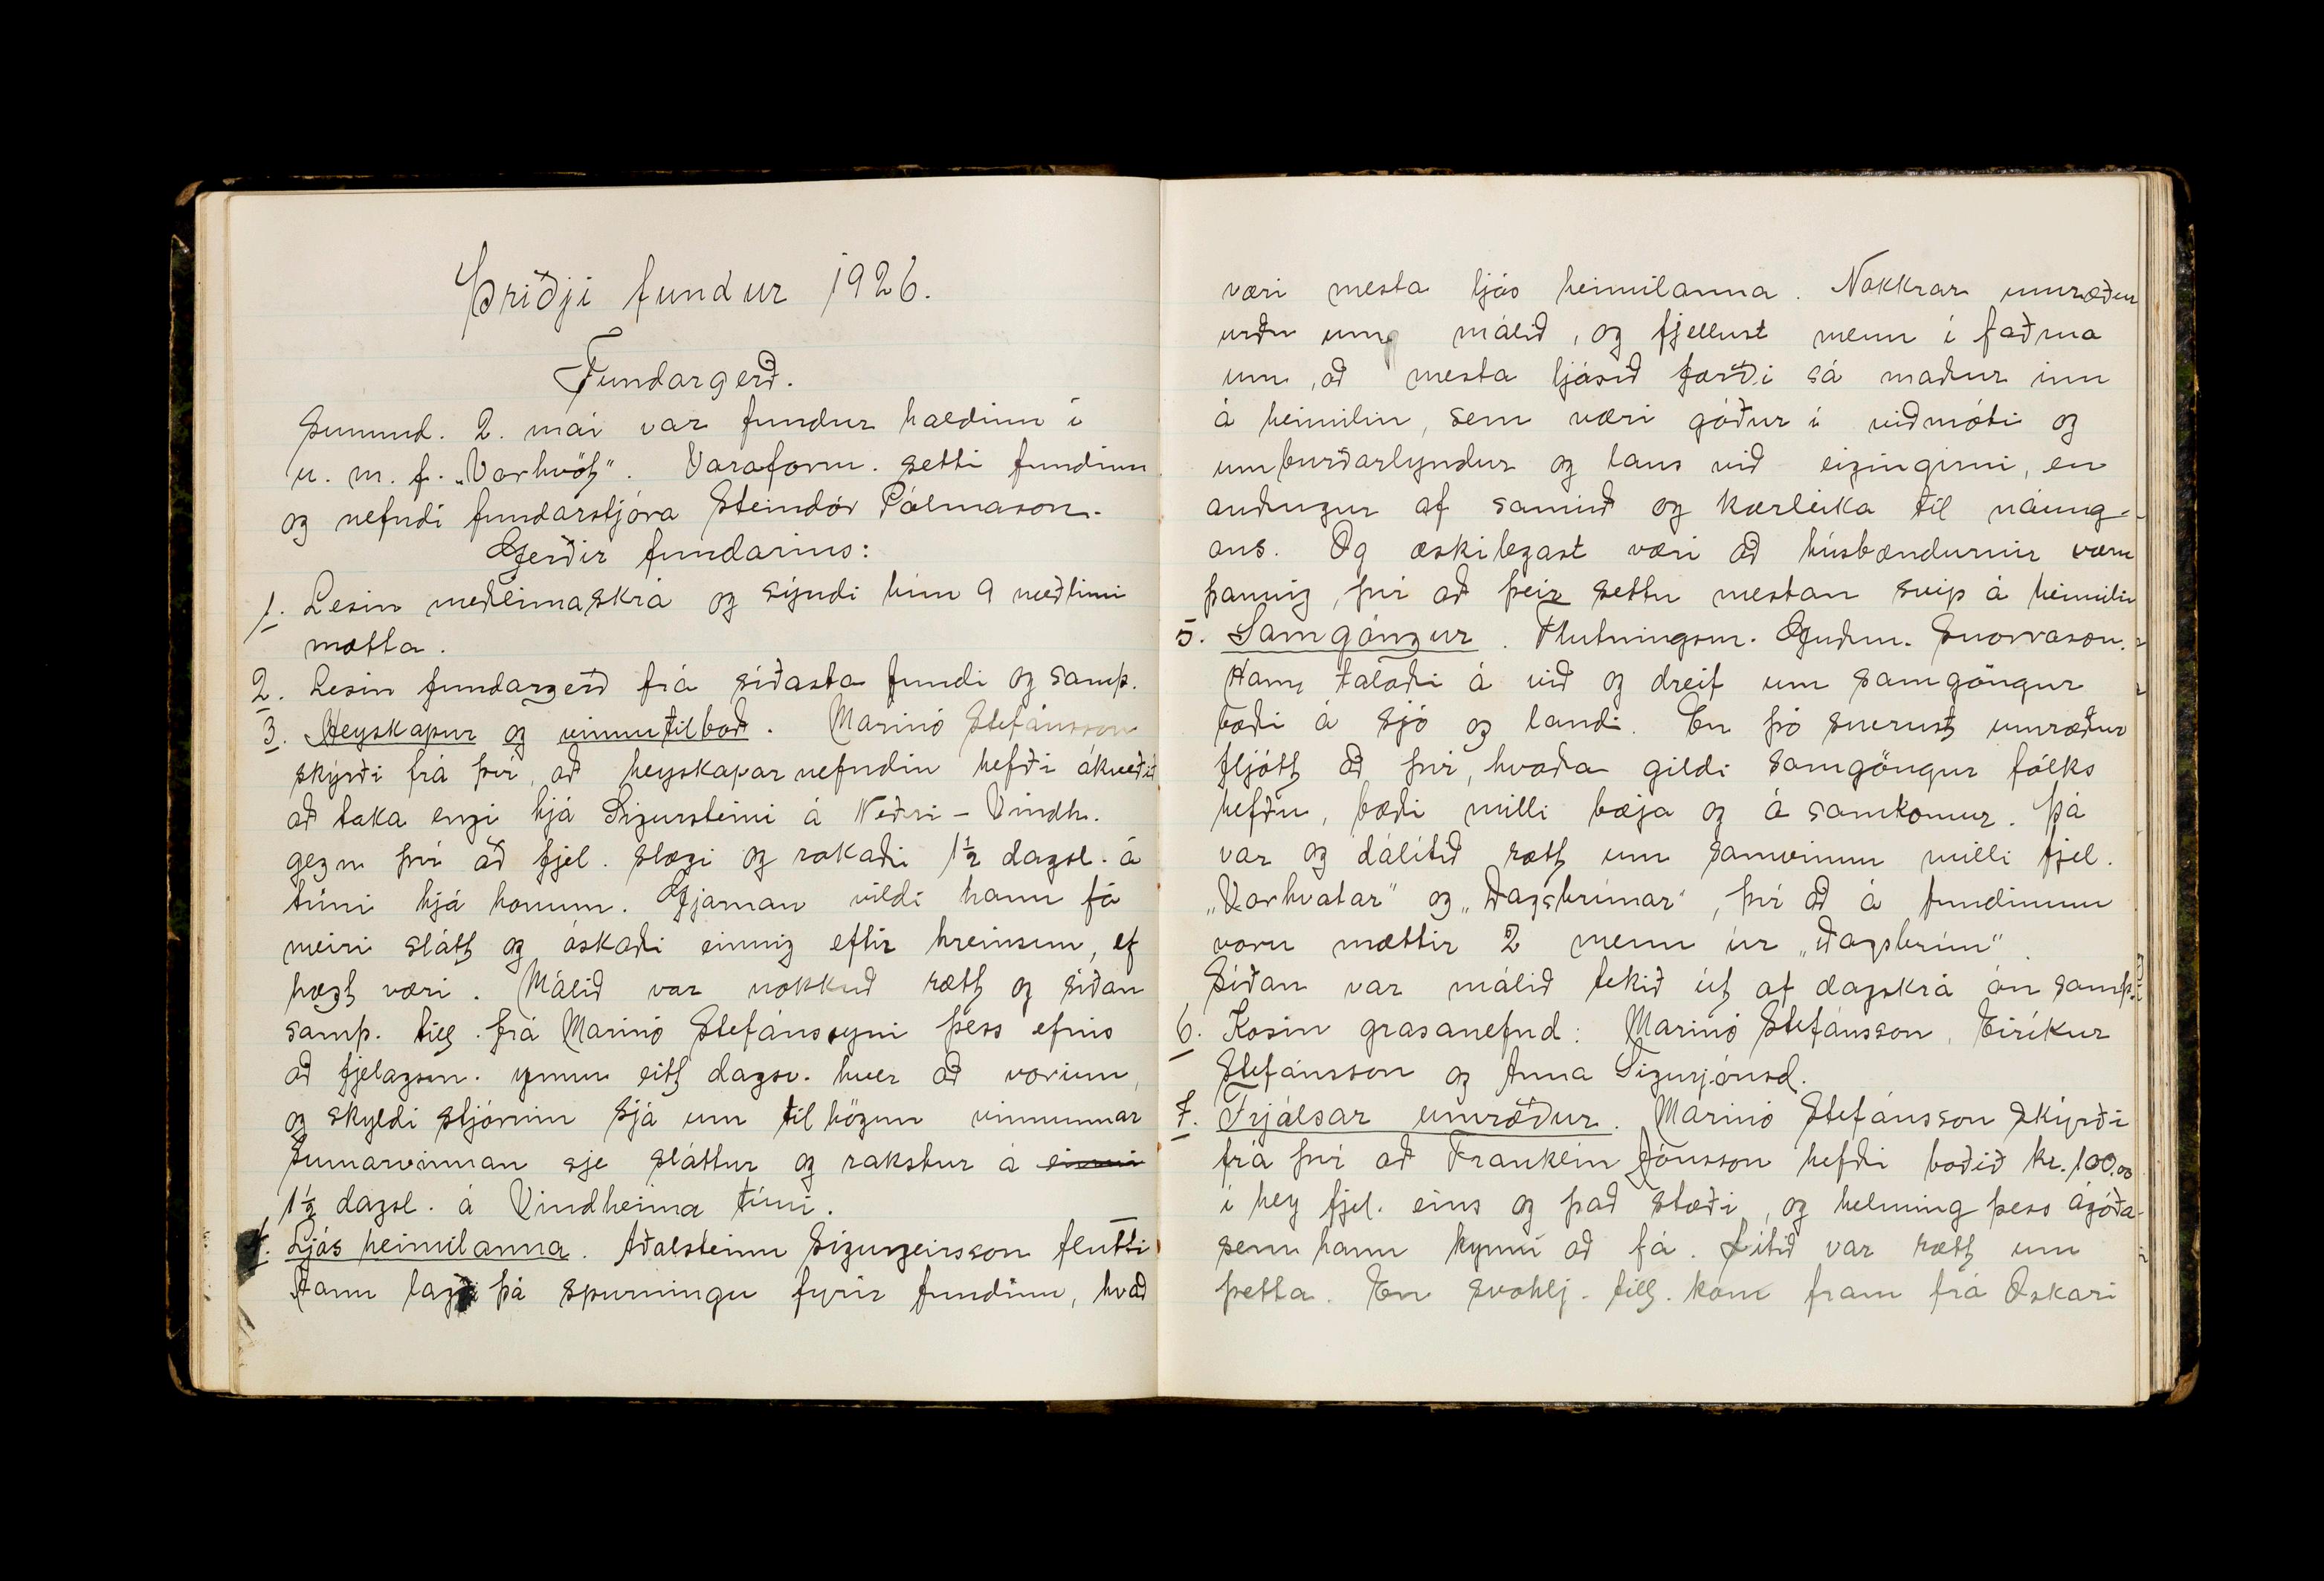 Þriðji fundur 1926.
Fundargerð.
Sunnud. 2. maí var fundur haldinn í
u. m. f. „Vorhvöt". Varaform. setti fundinn
og nefndi fundarstjóra Steindór Pálmason.
Gerðir fundarins:
1. Lesin meðlimaskrá og sýndi hún 9 meðlimi
mætta.
2. Lesin fundargerð frá síðasta fundi og samþ.
3. Heyskapur og vinnutilboð. Marinó Stefánsson
skýrði frá því, að heyskaparnefndin hefði ákveðið
að taka engi hjá Sigursteini á Neðri-Vindh.
gegn því að fjel. slægi og rakaði 1½ dagsl. á
túni hjá honum. Gjarnan vildi hann fá
meiri slátt og óskaði einnig eftir hreinsun, ef
hægt væri. Málið var nokkuð rætt og síðan
samþ. till. frá Marinó Stefánssyni þess efnis
að fjelagsm. ynnu eitt dagsv. hver að vorinu,
og skyldi stjórnin sjá um tilhögun vinnunnar
Sumarvinnan sje sláttur og rakstur á einni
1½ dagsl. á Vindheima túni.
4. Ljós heimilanna. Aðalsteinn Sigurgeirsson flutti
Hann lagði þá spurningu fyrir fundinn, hvað
væri mesta ljós heimilanna. Nokkrar umræður
urðu um málið, og fjellust menn í faðma
um, að mesta ljósið færði sá maður inn
á heimilin, sem væri góður í viðmóti og
umburðarlyndur og laus við eigingirni, en
auðugur af samúð og kærleika til náung-
ans. Og æskilegast væri að húsbændurnir væru
þannig, því að þeir settu mestan svip á heimilin
5. Samgöngur. Flutningsm. Guðm. Snorrason.
Hann talaði á við og dreif um samgöngur
bæði á sjó og landi. En þó snerust umræður
fljótt að því, hvaða gildi samgöngur fólks
hefðu, bæði milli bæja og á samkomur. Þá
var og dálítið rætt um samvinnu milli fjel.
„Vorhvatar" og „Dagsbrúnar", því að á fundinum
voru mættir 2 menn úr „Dagsbrún".
Síðan var málið tekið út af dagskrá án samþ.
6. Kosin grasanefnd: Marinó Stefánsson, Eiríkur
Stefánsson og Anna Sigurjónsd.
7. Frjálsar umræður. Marinó Stefánsson skýrði
frá því að Franklín Jónsson hefði boðið kr. 100.00
í hey fjel. eins og það stæði, og helming þess ágóða
sem hann kynni að fá. Lítið var rætt um
þetta. En svohlj. till. kom fram frá Óskari